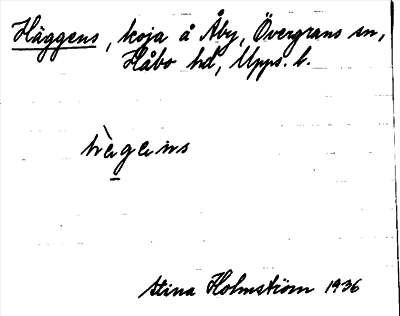 Häggens, koja å Åby, Övergrans sn,
Håbo hd, Upps. l.
hὲgens
Stina Holmström 1936